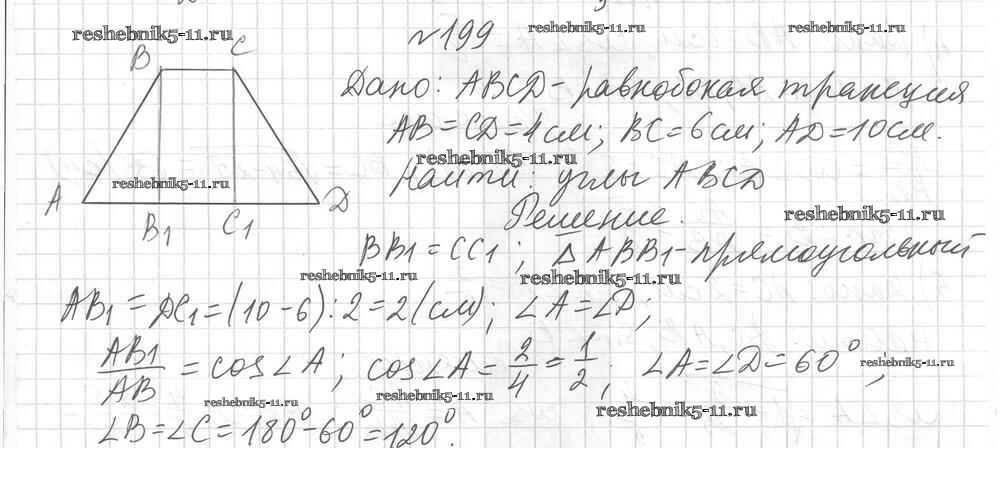 reshebnik5-11.ru
№199
reshebnik5-11.ru
reshebnik5-11.ru
B C
Дано: ABCD - равнобокая трапеция
AB = CD = 4 см; BC = 6 см; AD = 10 см.
reshebnik5-11.ru
reshebnik5-11.ru
Найти: углы ABCD
A D
B1 C1
Решение.
reshebnik5-11.ru
BB1 = CC1 ; Δ ABB1 - прямоугольный
reshebnik5-11.ru
reshebnik5-11.ru
AB1 = DC1 = (10 - 6) : 2 = 2 (см); ∠A = ∠D;
AB1/AB = cos∠A ; cos∠A = 2/4 = 1/2 ; ∠A = ∠D = 60° ;
reshebnik5-11.ru
reshebnik5-11.ru
reshebnik5-11.ru
reshebnik5-11.ru
∠B = ∠C = 180° - 60° = 120°.